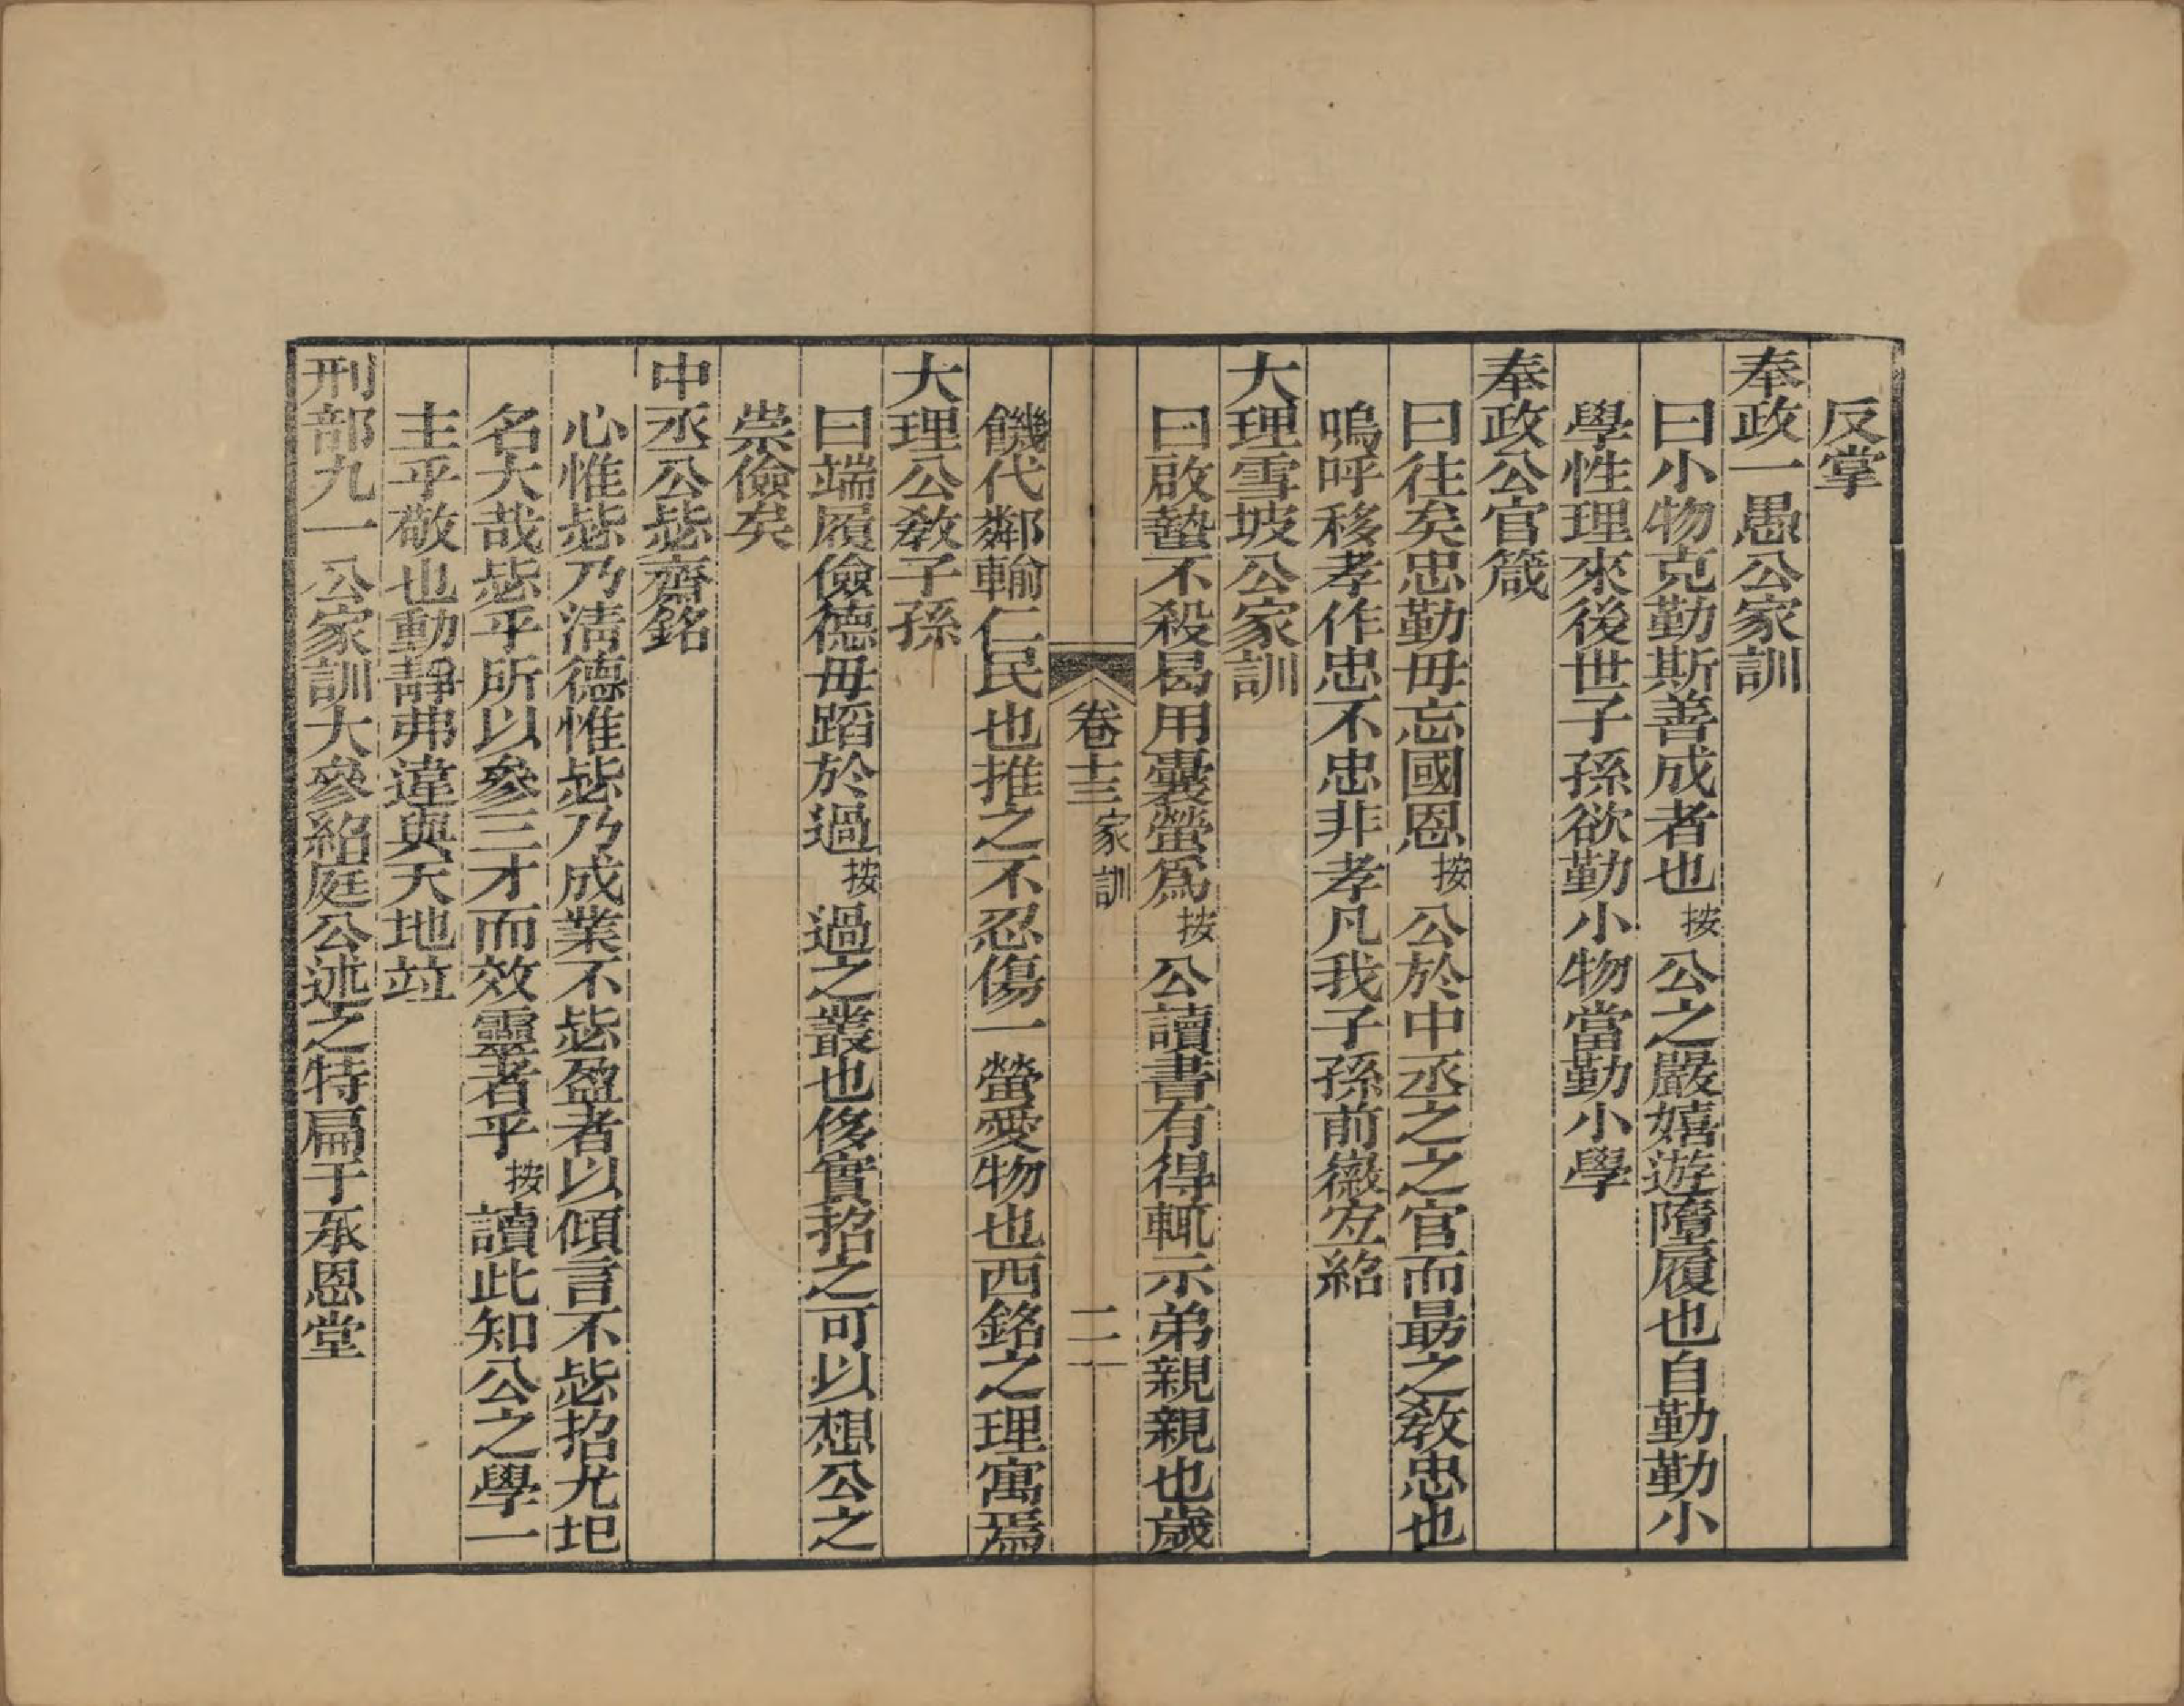 反掌
奉政一愚公家訓
曰小物克勤斯善成者也按公之嚴嬉遊隳履也自勤勤小
學性理來後世子孫欲勤小物當勤小學
奉政公官箴
曰往矣忠勤毋忘國恩按公於中丞之之官而最之敎忠也
嗚呼移孝作忠不忠非孝凡我子孫前徽宜紹
大理雪坡公家訓
曰啟蟄不殺曷用囊螢爲按公讀書有得輒示弟親親也歲
卷十三家訓
二
饑代鄰輸仁民也推之不忍傷一螢愛物也西銘之理寓焉
大理公敎子孫
曰端履儉德毋蹈於過按過之叢也侈實招之可以想公之
崇儉矣
中丞公毖齋銘
心惟毖乃淸德惟毖乃成業不毖盈者以傾言不毖招尤圯
名大哉毖乎所以參三才而效靈者乎按讀此知公之學一
主乎敬也動靜弗違與天地竝
刑部九一公家訓大參紹庭公述之特扁于承恩堂